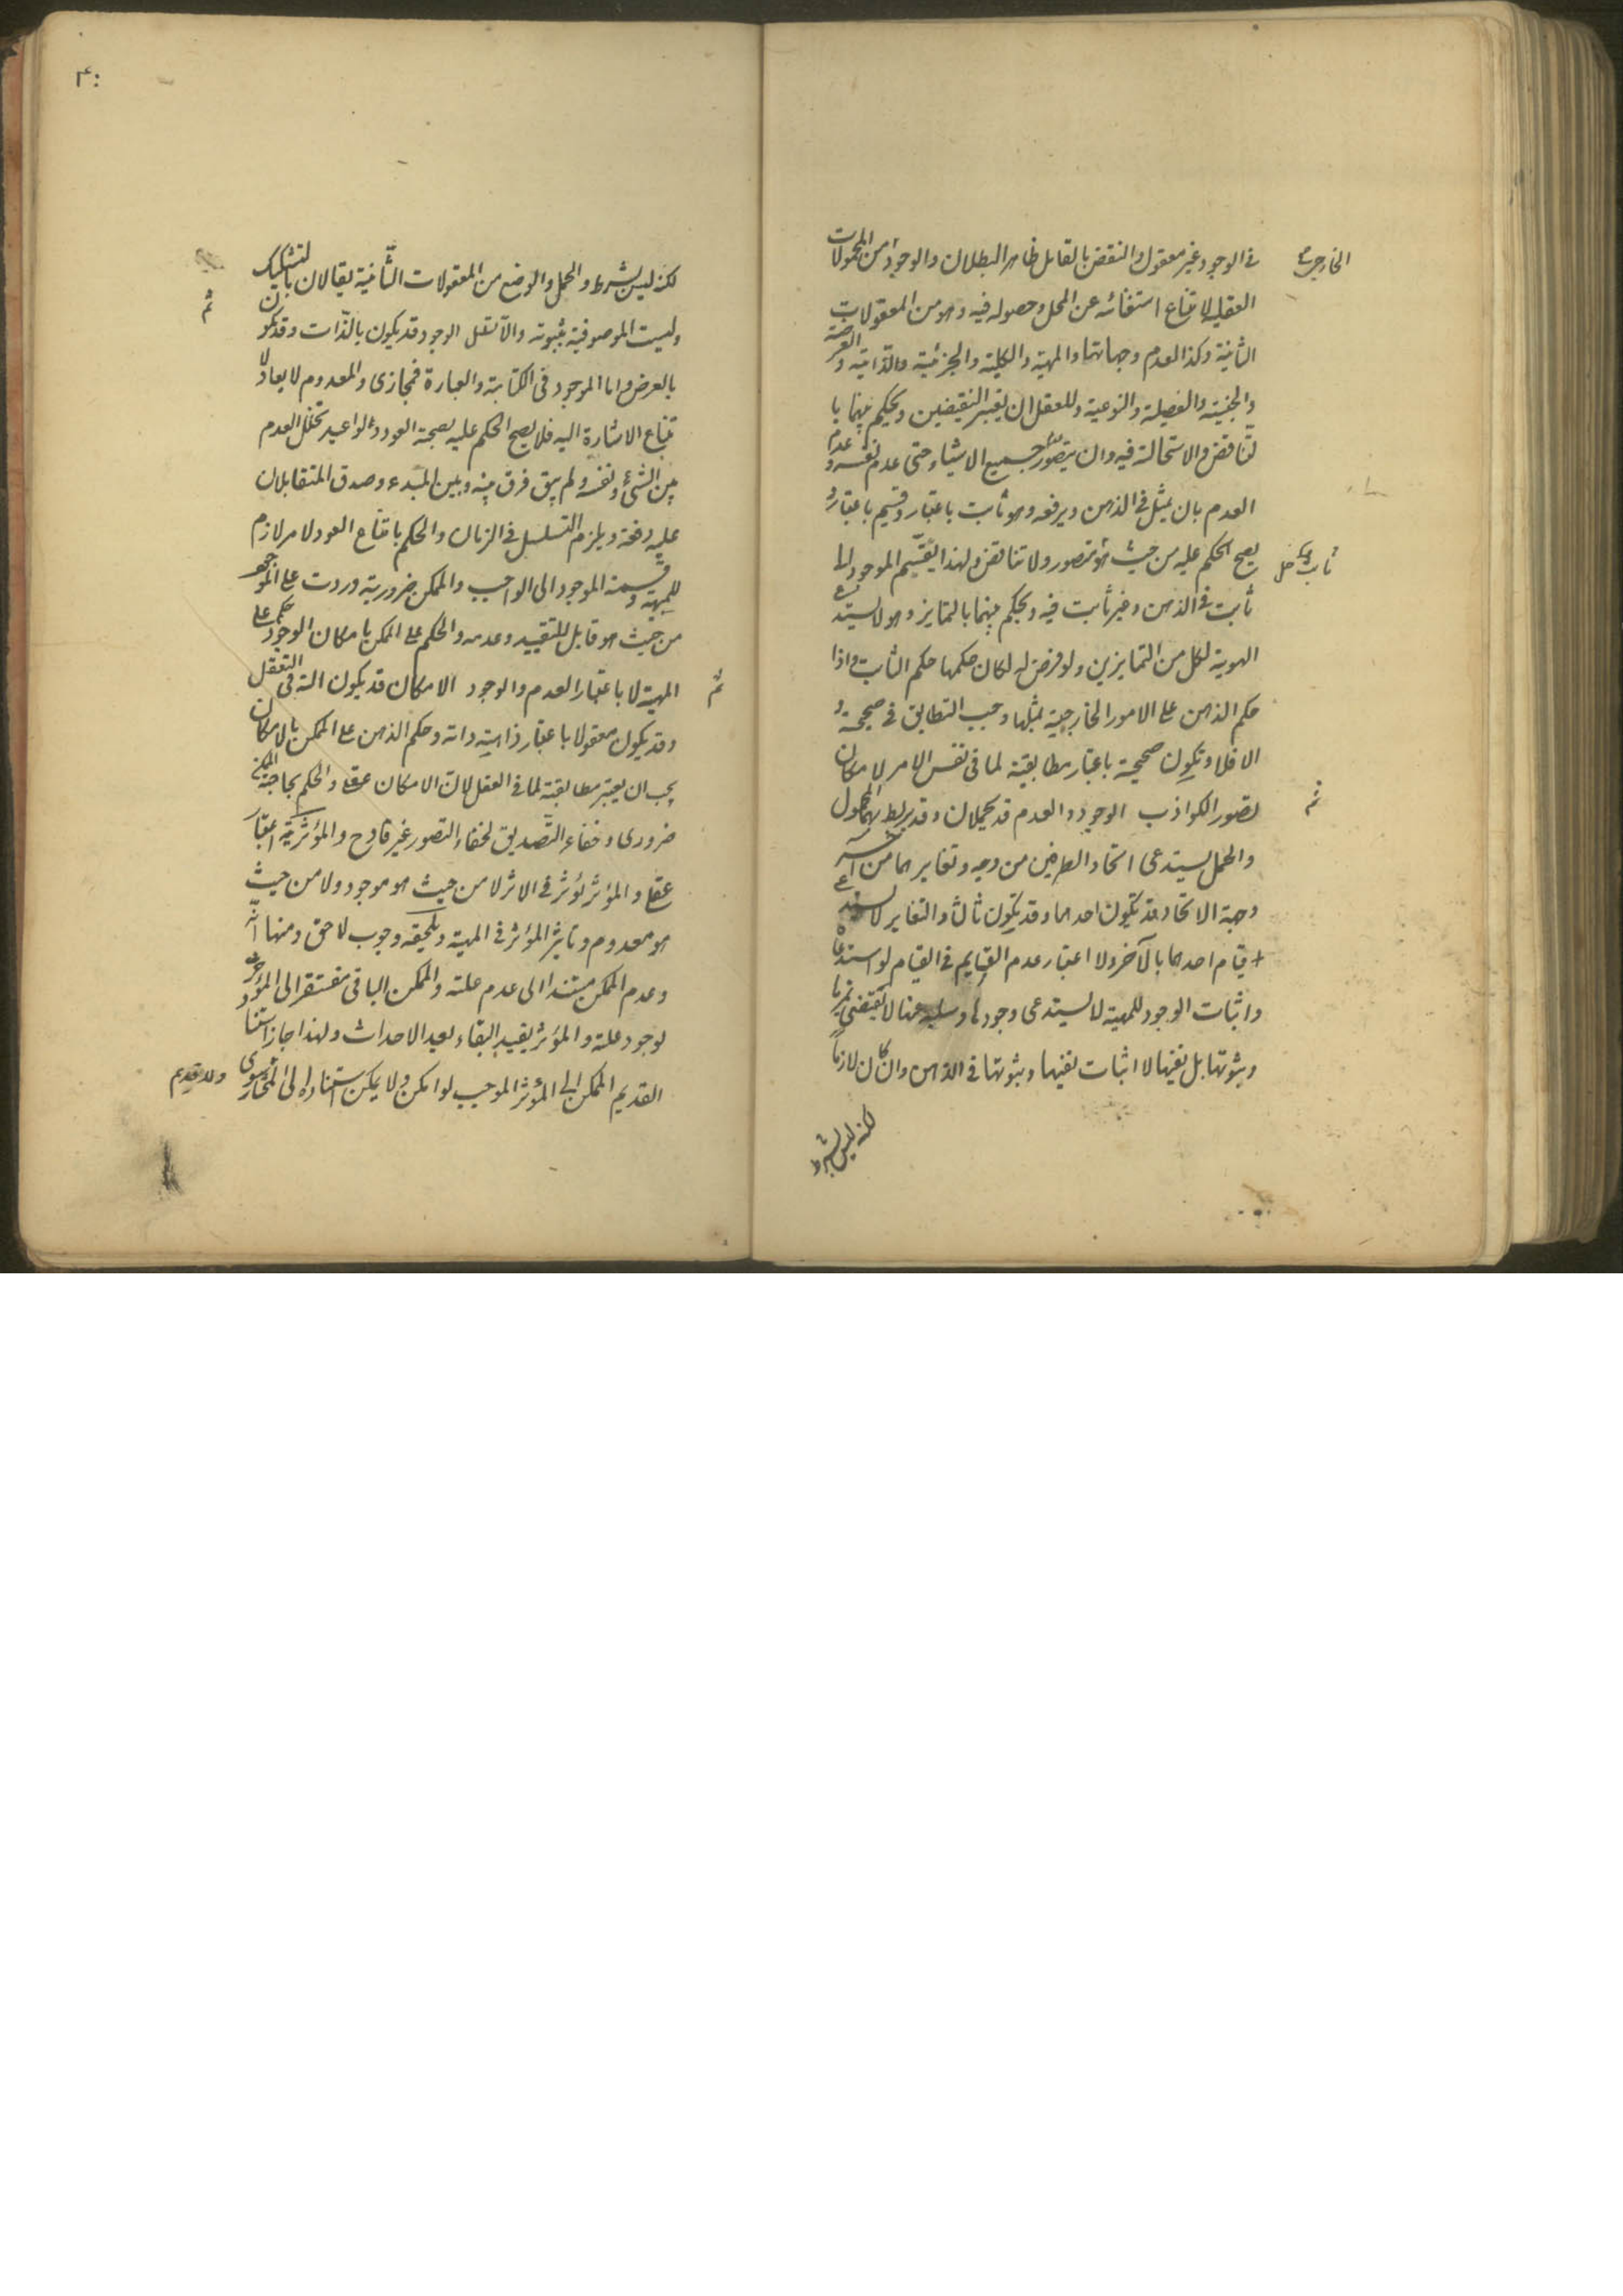 في الوجود غير معقول والنقض بالقابل ظاهر البطلان والوجود من المحمولات
العقلية لامتناع استغنائه عن المحل وحصوله فيه وهو من المعقولات
الثانية وكذا العدم وجهاتها والمهية والكلية والجزئية والذاتية والعرضية
والجنسية والفصلية والنوعية وللعقل ان يعتبر النقيضين ويحكم بينهما با
لتناقض والاستحالة فيه وان يتصور جميع الاشياء حتى عدم نفسه وعدم
العدم بان يمثل في الذهن ويرفعه وهو ثابت باعتبار وقسيم باعتبار و
يصح الحكم عليه من حيث هو متصور ولا تناقض ولهذا يقسم الموجود الى
ثابت في الذهن وغير ثابت فيه ويحكم بينهما بالتمايز وهو لا يستدعي
الهوية لكل من المتمايزين ولو فرض له لكان حكمها حكم الثابت واذا
حكم الذهن على الامور الخارجية بمثلها وجب التطابق في صحيحه و
الا فلا وتكون صحيحة باعتبار مطابقته لما في نفس الامر لامكان
تصور الكواذب الوجود والعدم قد يحملان وقد يربط بهما المحمول
والحمل يستدعي اتحاد الطرفين من وجه وتغايرهما من آخر
وجهة الاتحاد قد تكون احدهما وقد تكون ثالثا والتغاير لا يستدعي
قيام احدهما بالآخر ولا اعتبار عدم القايم في القيام لو استدعاه
واثبات الوجود للمهية لا يستدعي وجودها وسلبه عنها لا يقتضي تميزها
وثبوتها بل نفيها لا اثبات نفيها وثبوتها في الذهن وان كان لازما
لكنه ليس بشرط
الخارجي
ثم
۴۰
لكنه ليس بشرط والحمل والوضع من المعقولات الثانية يقالان بالتشكيك
وليست الموصوفية بثبوته والا تسلسل الوجود قد يكون بالذات وقد يكون
بالعرض واما الموجود في الكتابة والعبارة فمجازي والمعدوم لا يعاد لا
متناع الاشارة اليه فلا يصح الحكم عليه بصحة العود ولو اعيد تخلل العدم
بين الشيء ونفسه ولم يبق فرق بينه وبين المبتدء وصدق المتقابلان
عليه دفعة ويلزم التسلسل في الزمان والحكم بامتناع العود لامر لازم
للمهية وقسمة الموجود الى الواجب والممكن ضرورية وردت على الموجود
من حيث هو قابل للتقييد وعدمه والحكم على الممكن بامكان الوجود حكم على
المهية لا باعتبار العدم والوجود الامكان قد يكون آلة في التعقل
وقد يكون معقولا باعتبار ذاته وحكم الذهن على الممكن بالامكان
يجب ان يعتبر مطابقته لما في العقل لان الامكان عقلي والحكم بحاجة الممكن
ضروري وخفاء التصديق لخفاء التصور غير قادح والمؤثرية اعتبار
عقلي والمؤثر يؤثر في الاثر لا من حيث هو موجود ولا من حيث
هو معدوم وتاثير المؤثر في المهية ويلحقه وجوب لاحق ومنها انه
وعدم الممكن مستند الى عدم علته والممكن الباقي مفتقر الى المؤثر
لوجود علته والمؤثر يفيد البقاء بعد الاحداث ولهذا جاز استناد
القديم الممكن الى المؤثر الموجب لو امكن ولا يمكن استناده الى المختار
ولا قديم سوى
ثم
ثم